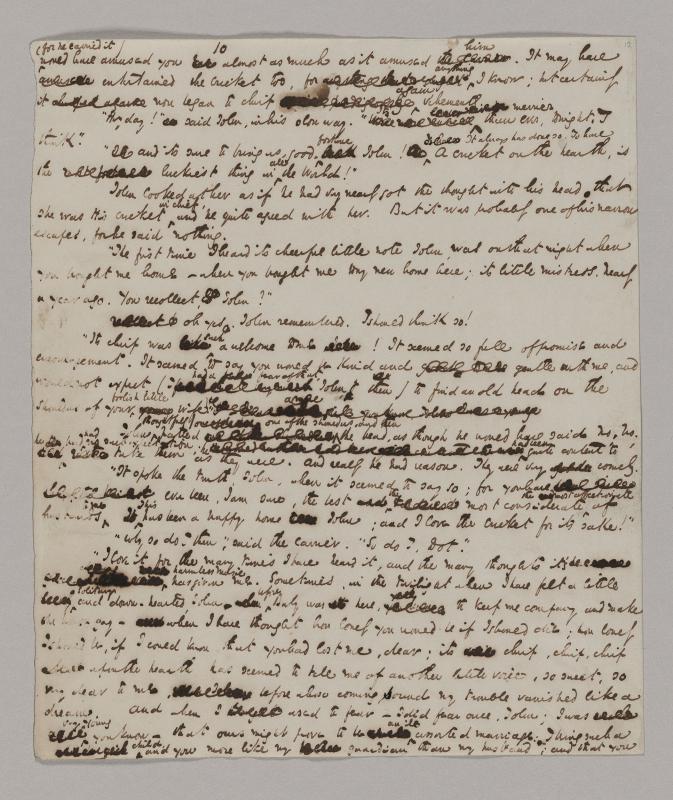 (for he carried it) 10
would have amused you almost as much as it amused him. It may have
entertained the Cricket too, for anything I know; but certainly
it now began to chirp again vehemently.
"Heyday!" said John, in his slow way. "It's merrier than ever, tonight, I
think."
"And it's sure to bring us good fortune John! It always has done so. To have
a Cricket on the Hearth, is
the luckiest thing in all the World!"
John looked at her as if he had very nearly got the thought into his head, that
she was his Cricket in chief, and he quite agreed with her. But it was probably one of his narrow
escapes, for he said nothing.
"The first time I heard its cheerful little note John, was on that night when
you brought me home – when you brought me to my new home here; its little mistress. Nearly
a year ago. You recollect, John?"
Oh yes. John remembered. I should think so!
"Its chirp was such a welcome to me! It seemed so full of promise and
encouragement. It seemed to say you would be kind and gentle with me, and
would not expect (I had a fear of that, John, then) to find an old head on the
shoulders of your foolish little wife."
John thoughtfully patted one of the shoulders, and then the head, as though he would have said No, No.
he had had no such expectation; he had been quite content to
take them as they were. And really he had reason. They were very comely.
"It spoke the truth John, when it seemed to say so; for you have
ever been, I am sure, the best the most considerate, the most affectionate of
husbands to me. This has been a happy home John; and I love the Cricket for its sake!"
"Why so do I then," said the Carrier. "So do I, Dot."
"I love it for the many times I have heard it, and the many thoughts its
harmless music has given me. Sometimes, in the twilight when I have felt a little
solitary and down-hearted John – before baby was here, to keep me company and make
the house gay – when I have thought how lonely you would be if I should die; how lonely
I should be, if I could know that you had lost me, dear; its chirp, chirp, chirp
upon the hearth has seemed to tell me of another little voice, so sweet, so
very dear to me, before whose coming sound my trouble vanished like a
dream. And when I used to fear – I did fear once, John; I was
very young you know – that ours might prove to be an ill assorted marriage: I being such a
child, and you more like my guardian than my husband; and that you